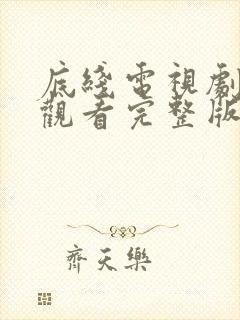 底綫電視劇
觀看完整版
齊天樂